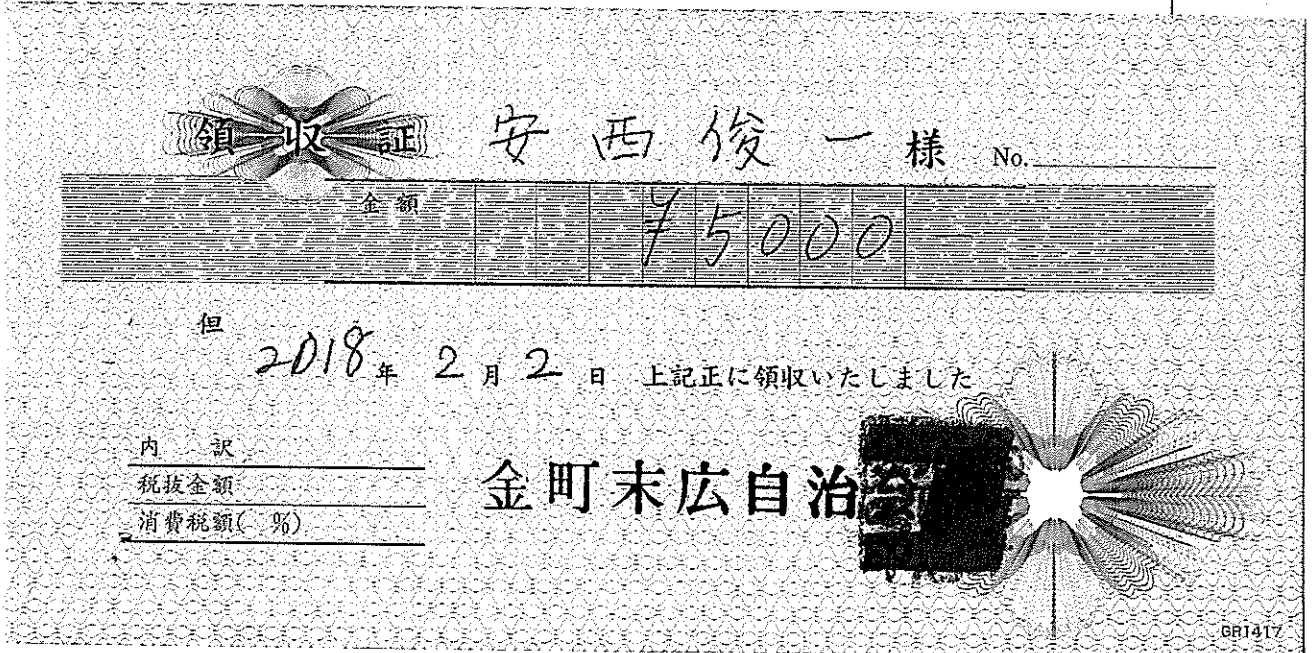 領収証 安西俊一様 No.
金額 ¥5000
但
2018年 2月 2日 上記正に領収いたしました
内訳
税抜金額
消費税額( %)
金町末広自治会
GR1417